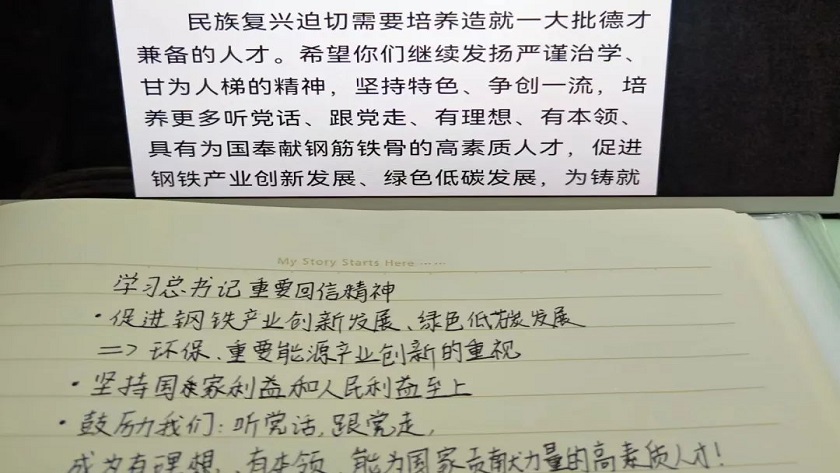 民族复兴迫切需要培养造就一大批德才
兼备的人才。希望你们继续发扬严谨治学、
甘为人梯的精神，坚持特色、争创一流，培
养更多听党话、跟党走、有理想、有本领、
具有为国奉献钢筋铁骨的高素质人才，促进
钢铁产业创新发展、绿色低碳发展，为铸就
My Story Starts Here ······
学习总书记重要回信精神
·促进钢铁产业创新发展、绿色低碳发展
=> 环保、重要能源产业创新的重视
·坚持国家利益和人民利益至上
·鼓历我们：听党话，跟党走，
成为有理想、有本领、能为国家贡献力量的高素质人才！